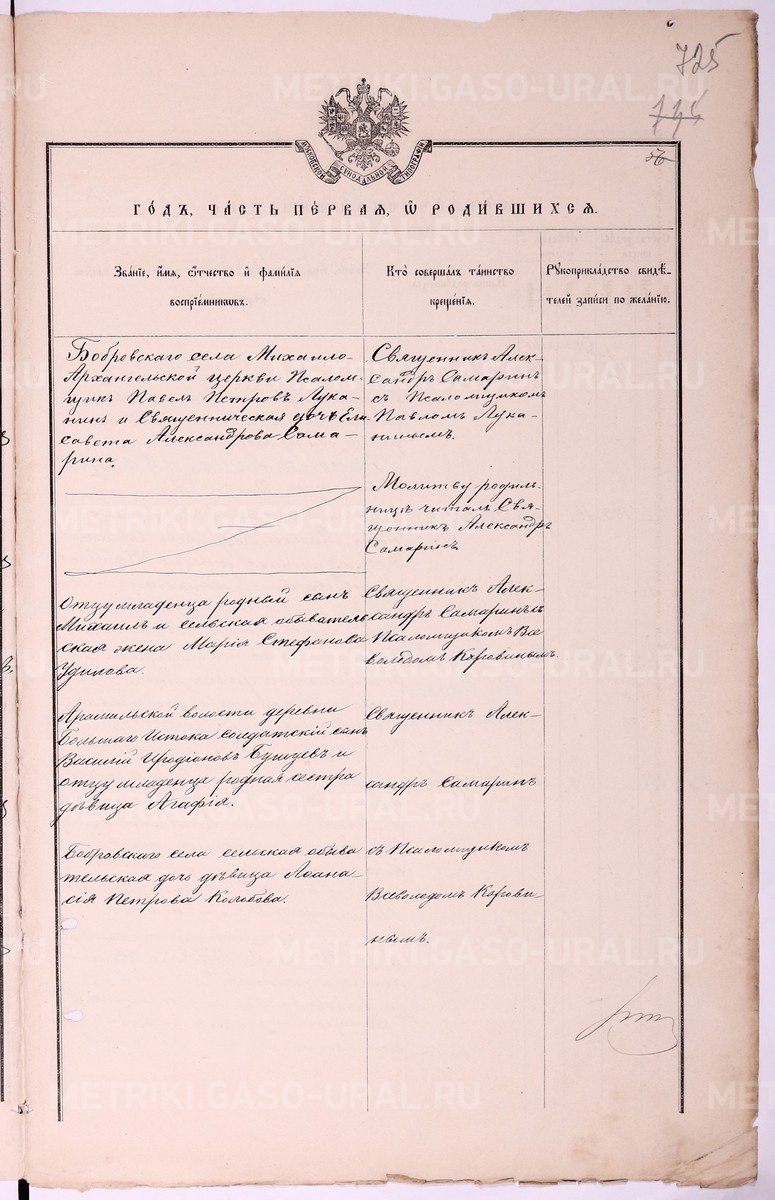 725
МОСКОВСКОЙ СѴНОДАЛЬНОЙ ТИПОГРАФІИ
ГО́ДЪ, ЧА́СТЬ ПЕ́РВАЯ, Ѡ РОДИ́ВШИХСЯ.
Зва́нїе, и́мя, ѻ҆́тчество и҆ фами́лїя
воспрїе́мниковъ.
Кто̀ соверша́лъ та́инство
креще́нїя.
Рꙋкоприкла́дство свидѣ́-
телей за́писи по жела́нїю.
Бобровскаго села Михаило-
Архангельской церкви Псалом-
щикъ Павелъ Петровъ Лука-
нинъ и Священническая дочь Ели
савета Александрова Сама-
рина.
Священникъ Алек-
сандръ Самаринъ
съ Псаломщикомъ
Павломъ Лука-
нинымъ.
Молитву родиль-
ницѣ читалъ Свя-
щенникъ Александръ
Самаринъ
Отцу младенца родный сынъ
Михаилъ и сельская обыватель
ская жена Марія Стефанова
Удилова.
Священникъ Алек-
сандръ Самаринъ съ
Псаломщикомъ Все
володомъ Коровинымъ.
Арамильской волости деревни
Большаго Истока солдатскій сынъ
Василій Иродіоновъ Бушуевъ и
отцу младенца родная сестра
дѣвица Агафія.
Священникъ Алек-
сандръ Самаринъ
Бобровскаго села сельская обыва
тельская дочь дѣвица Аѳана-
сія Петрова Колобова.
съ Псаломщикомъ
Всеволодомъ Корови-
нымъ.
METRIKI.GASO-URAL.RU